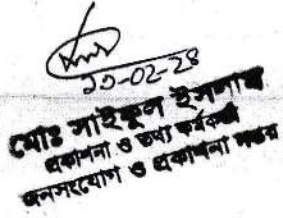 ২১-০২-২৪
মোঃ সাইফুল ইসলাম
প্রকাশনা ও তথ্য কর্মকর্তা
জনসংযোগ ও প্রকাশনা দপ্তর